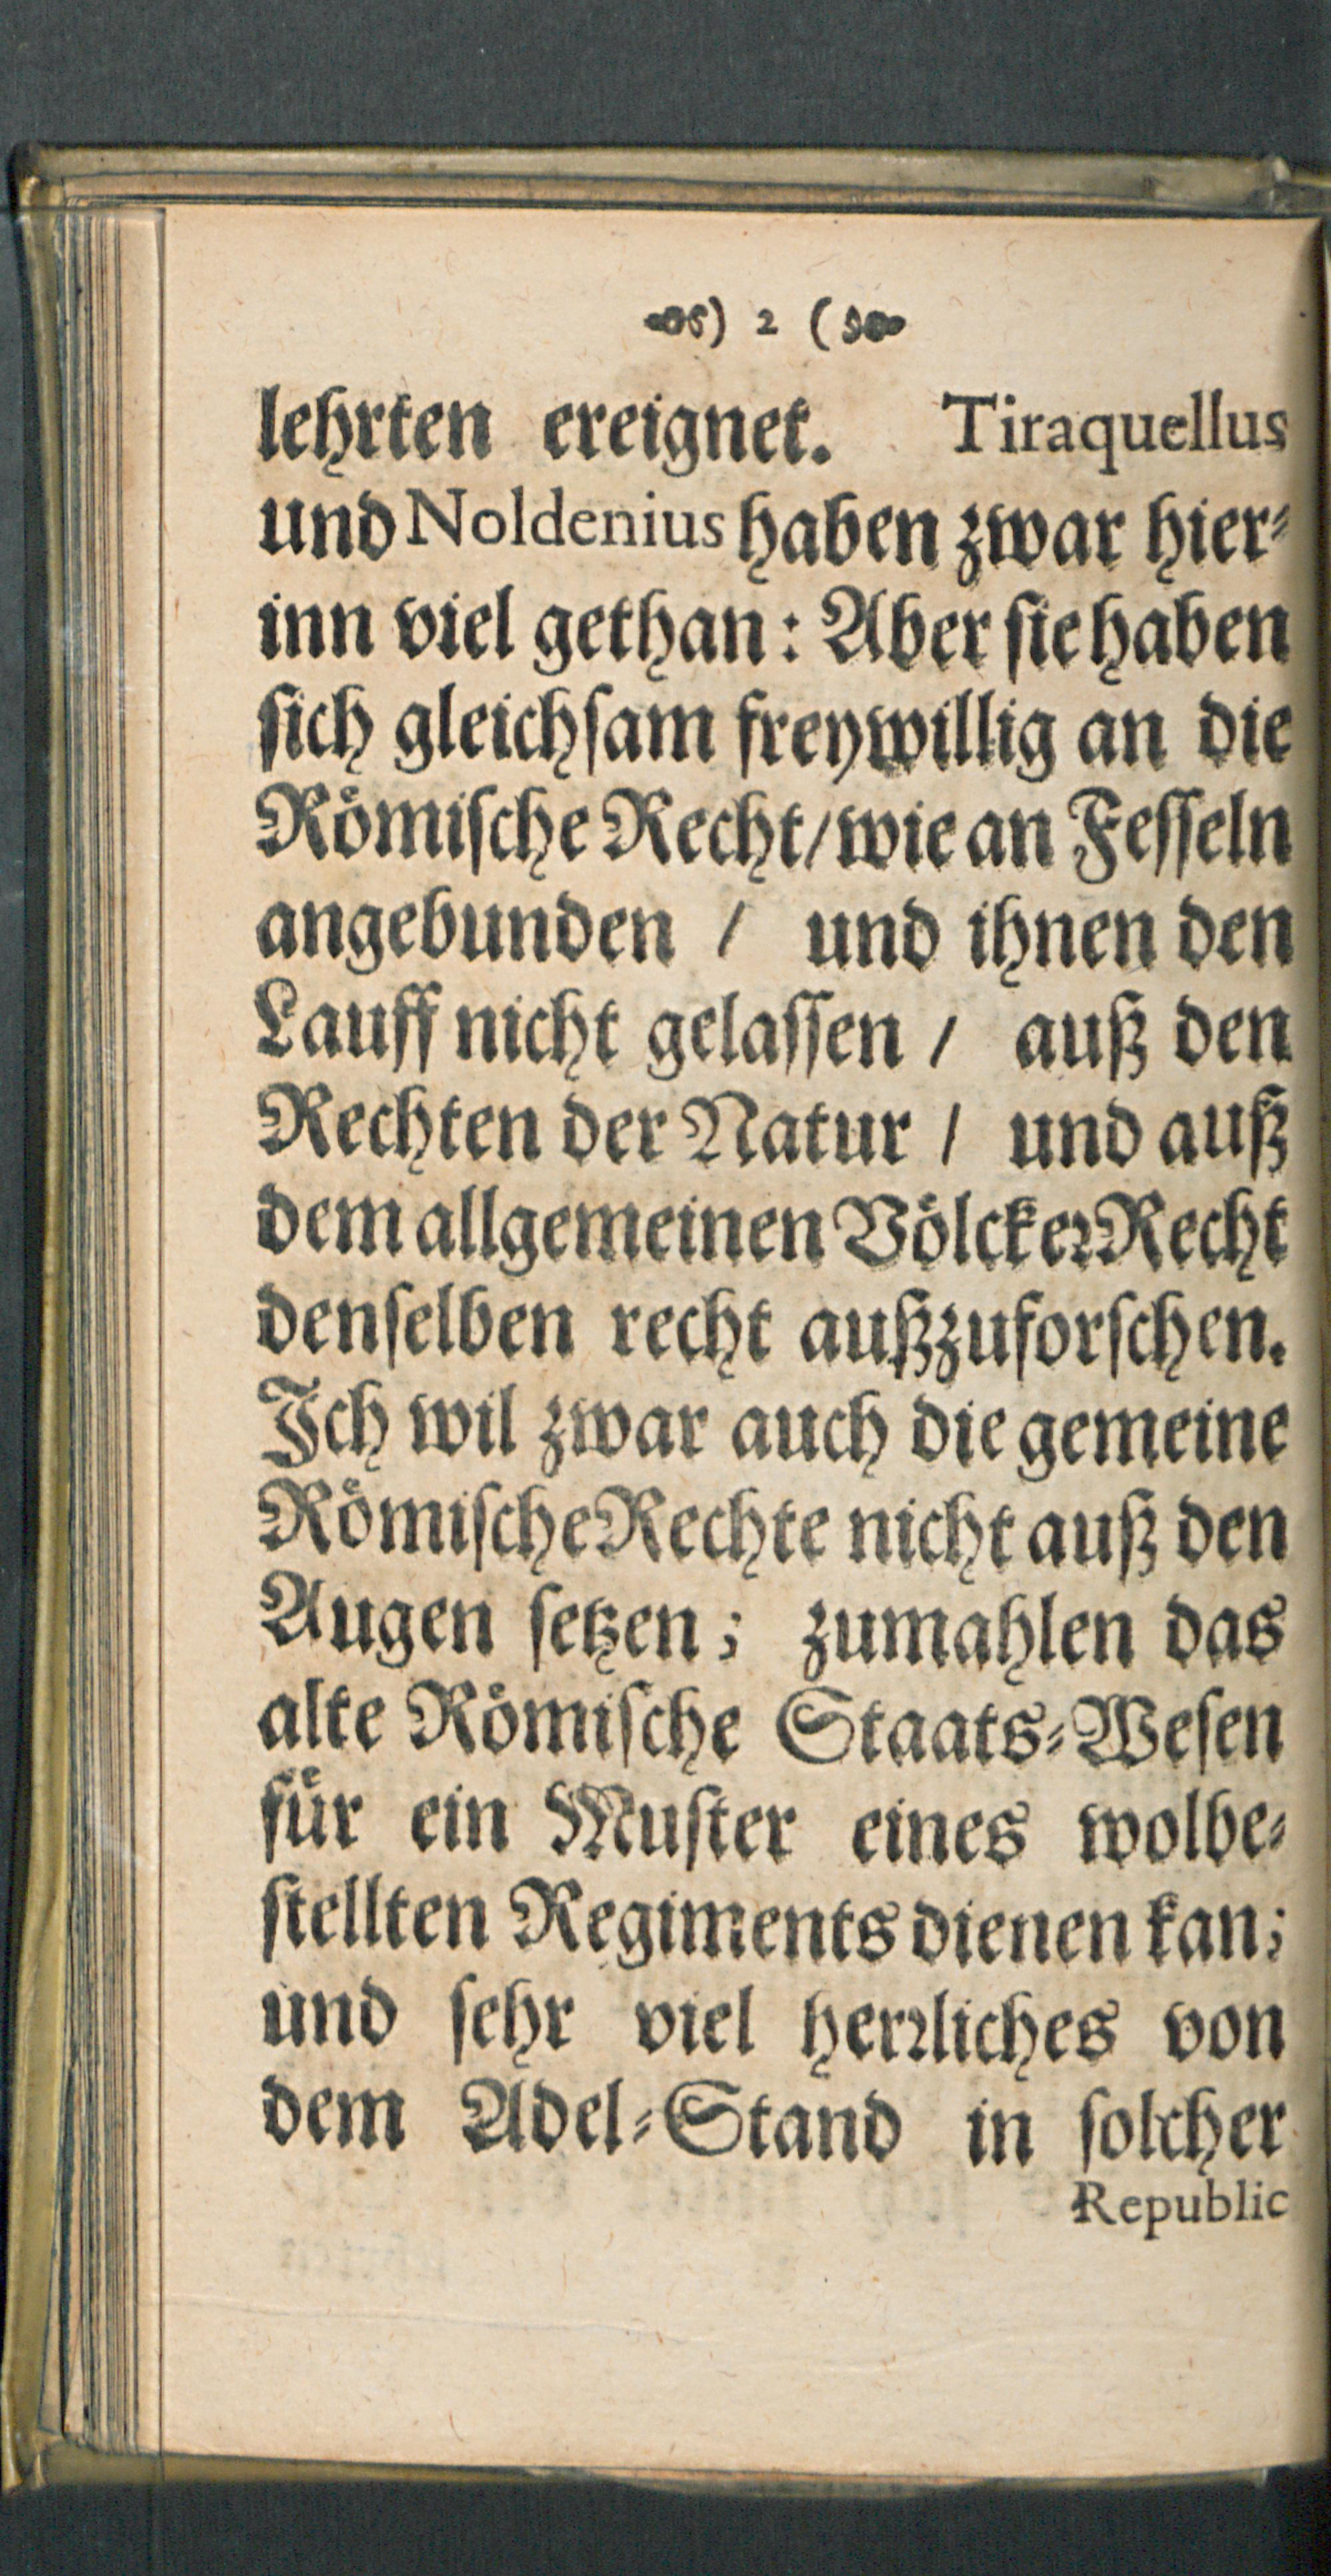 ) 2 (
lehrten ereignet. Tiraquellus
und Noldenius haben zwar hier⸗
inn viel gethan: Aber sie haben
sich gleichsam freywillig an die
Römische Recht/ wie an Fesseln
angebunden / und ihnen den
Lauff nicht gelassen / auß den
Rechten der Natur / und auß
dem allgemeinen Völcker Recht
denselben recht außzuforschen.
Ich wil zwar auch die gemeine
Römische Rechte nicht auß den
Augen setzen; zumahlen das
alte Römische Staats⸗Wesen
für ein Muster eines wolbe⸗
stellten Regiments dienen kan;
und sehr viel herrliches von
dem Adel⸗Stand in solcher
Republic